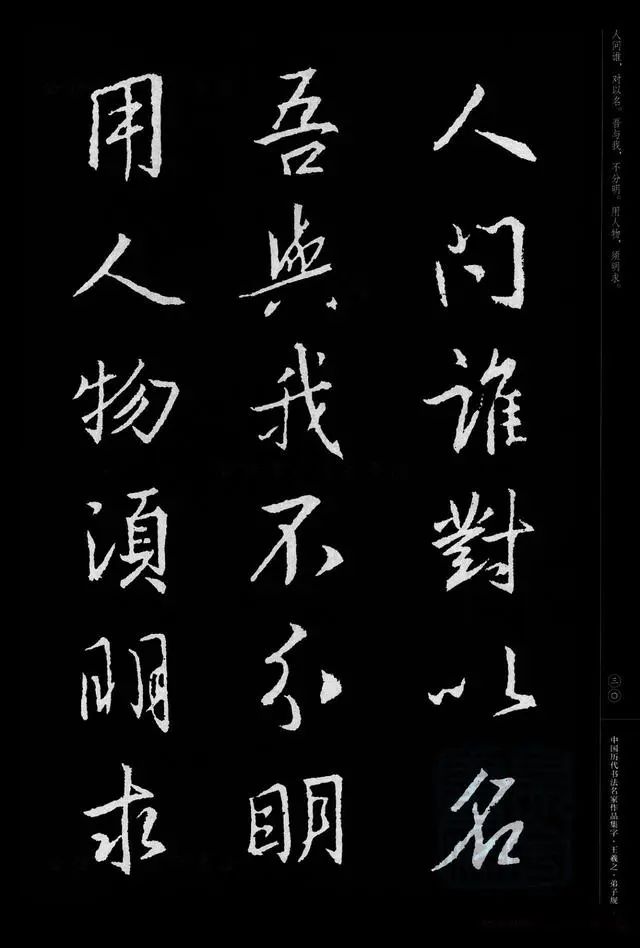 人問誰對以名
吾與我不分明
用人物須明求
人问谁，对以名。吾与我，不分明。用人物，须明求。
三〇
中国历代书法名家作品集字·王羲之·弟子规